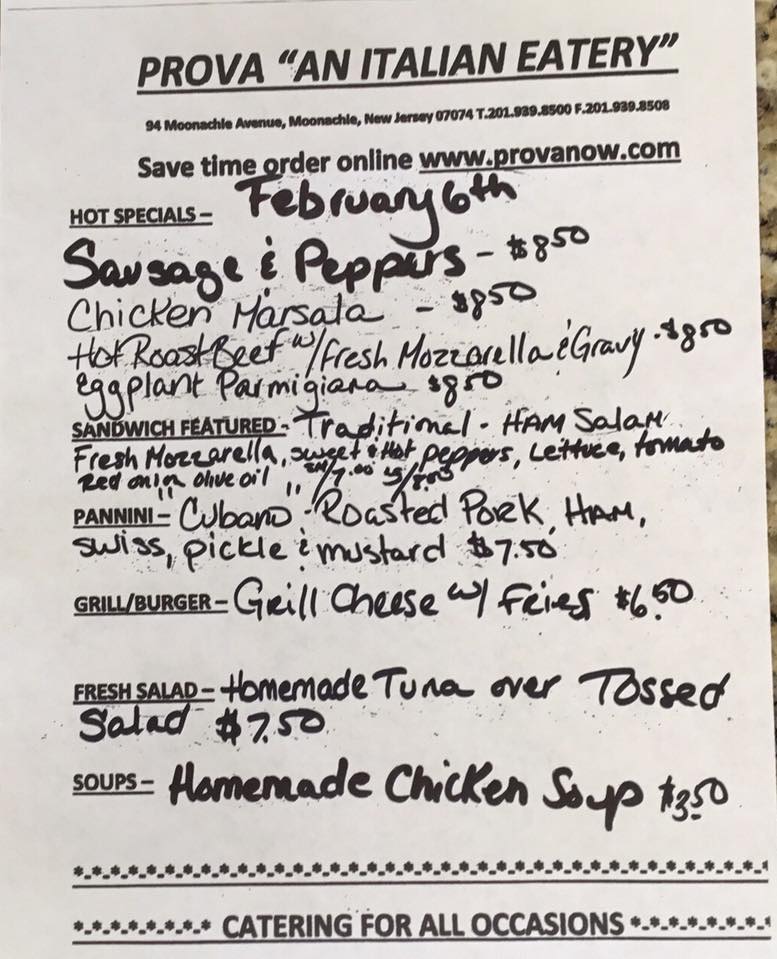 PROVA “AN ITALIAN EATERY”
94 Moonachie Avenue, Moonachie, New Jersey 07074 T.201.939.8500 F.201.939.8508
Save time order online www.provanow.com
HOT SPECIALS – February 6th
Sausage & Peppers - $8.50
Chicken Marsala - $8.50
Hot Roast Beef w/ Fresh Mozzarella & Gravy - $8.50
eggplant Parmigiana $8.50
SANDWICH FEATURED - Traditional - HAM Salami
Fresh Mozzarella, sweet & Hot peppers, Lettuce, tomato
Red onion olive oil /7.00
PANNINI – Cubano - Roasted Pork, HAM,
swiss, pickle & mustard $7.50
GRILL/BURGER – Grill Cheese w/ Fries $6.50
FRESH SALAD – Homemade Tuna over Tossed
Salad $7.50
SOUPS – Homemade Chicken Soup $3.50
*-*-*-*-*-*-*-*-*-*-*-*-*-*-*-*-*-*-*-*-*-*-*-*-*-*-*-*-*-*-*-*-*-*-*
*-*-*-*-*-*-*-* CATERING FOR ALL OCCASIONS *-*-*-*-*-*-*-*